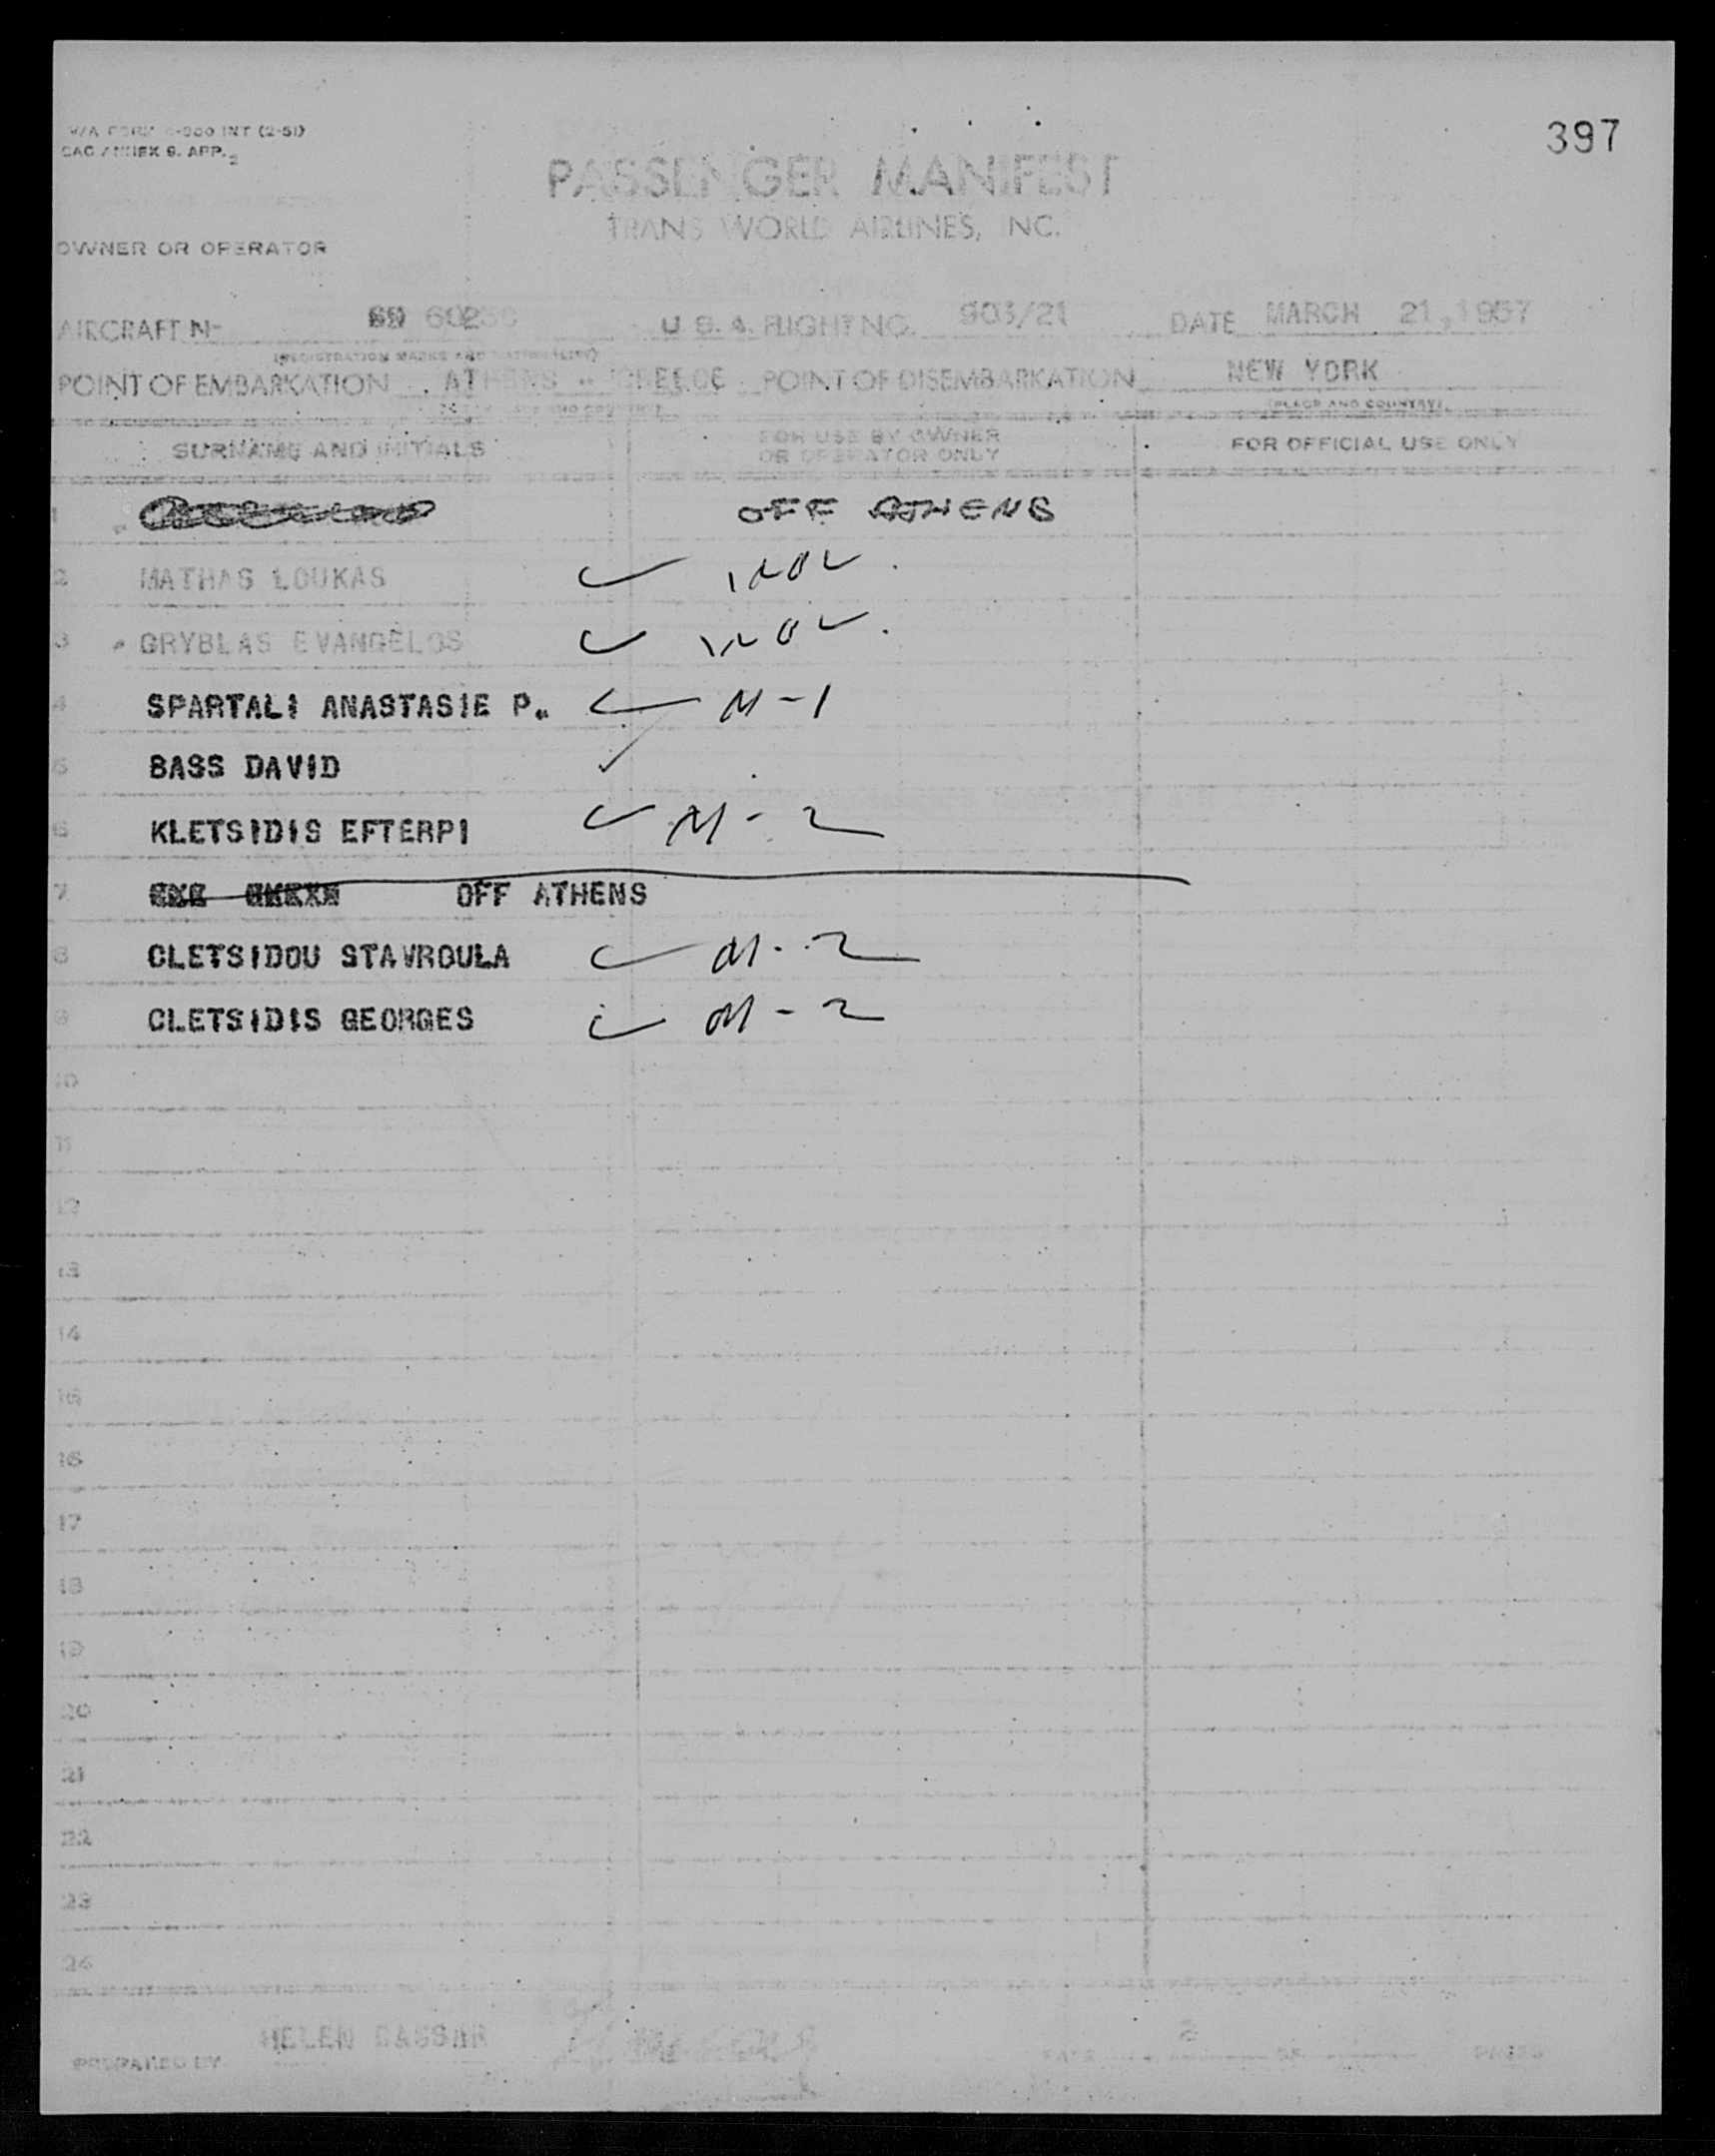 397
PASSENGER MANIFEST
TRANS WORLD AIRLINES, INC.
OWNER OR OPERATOR
AIRCRAFT N- U.S.A. FLIGHT NO. 903/21 DATE MARCH 21, 1957
POINT OF EMBARKATION ATHENS -- GREECE POINT OF DISEMBARKATION NEW YORK
(PLACE AND COUNTRY)
SURNAME AND INITIALS FOR USE BY OWNER OR OPERATOR ONLY FOR OFFICIAL USE ONLY
1 OFF ATHENS
2 MATHAS LOUKAS
3 GRYBLAS EVANGELOS
4 SPARTALI ANASTASIE P. M-1
5 BASS DAVID
6 KLETSIDIS EFTERPI M-2
7 OFF ATHENS
8 CLETSIDOU STAVROULA M-2
9 CLETSIDIS GEORGES M-2
10
11
12
13
14
15
16
17
18
19
20
21
22
23
24
PREPARED BY HELEN